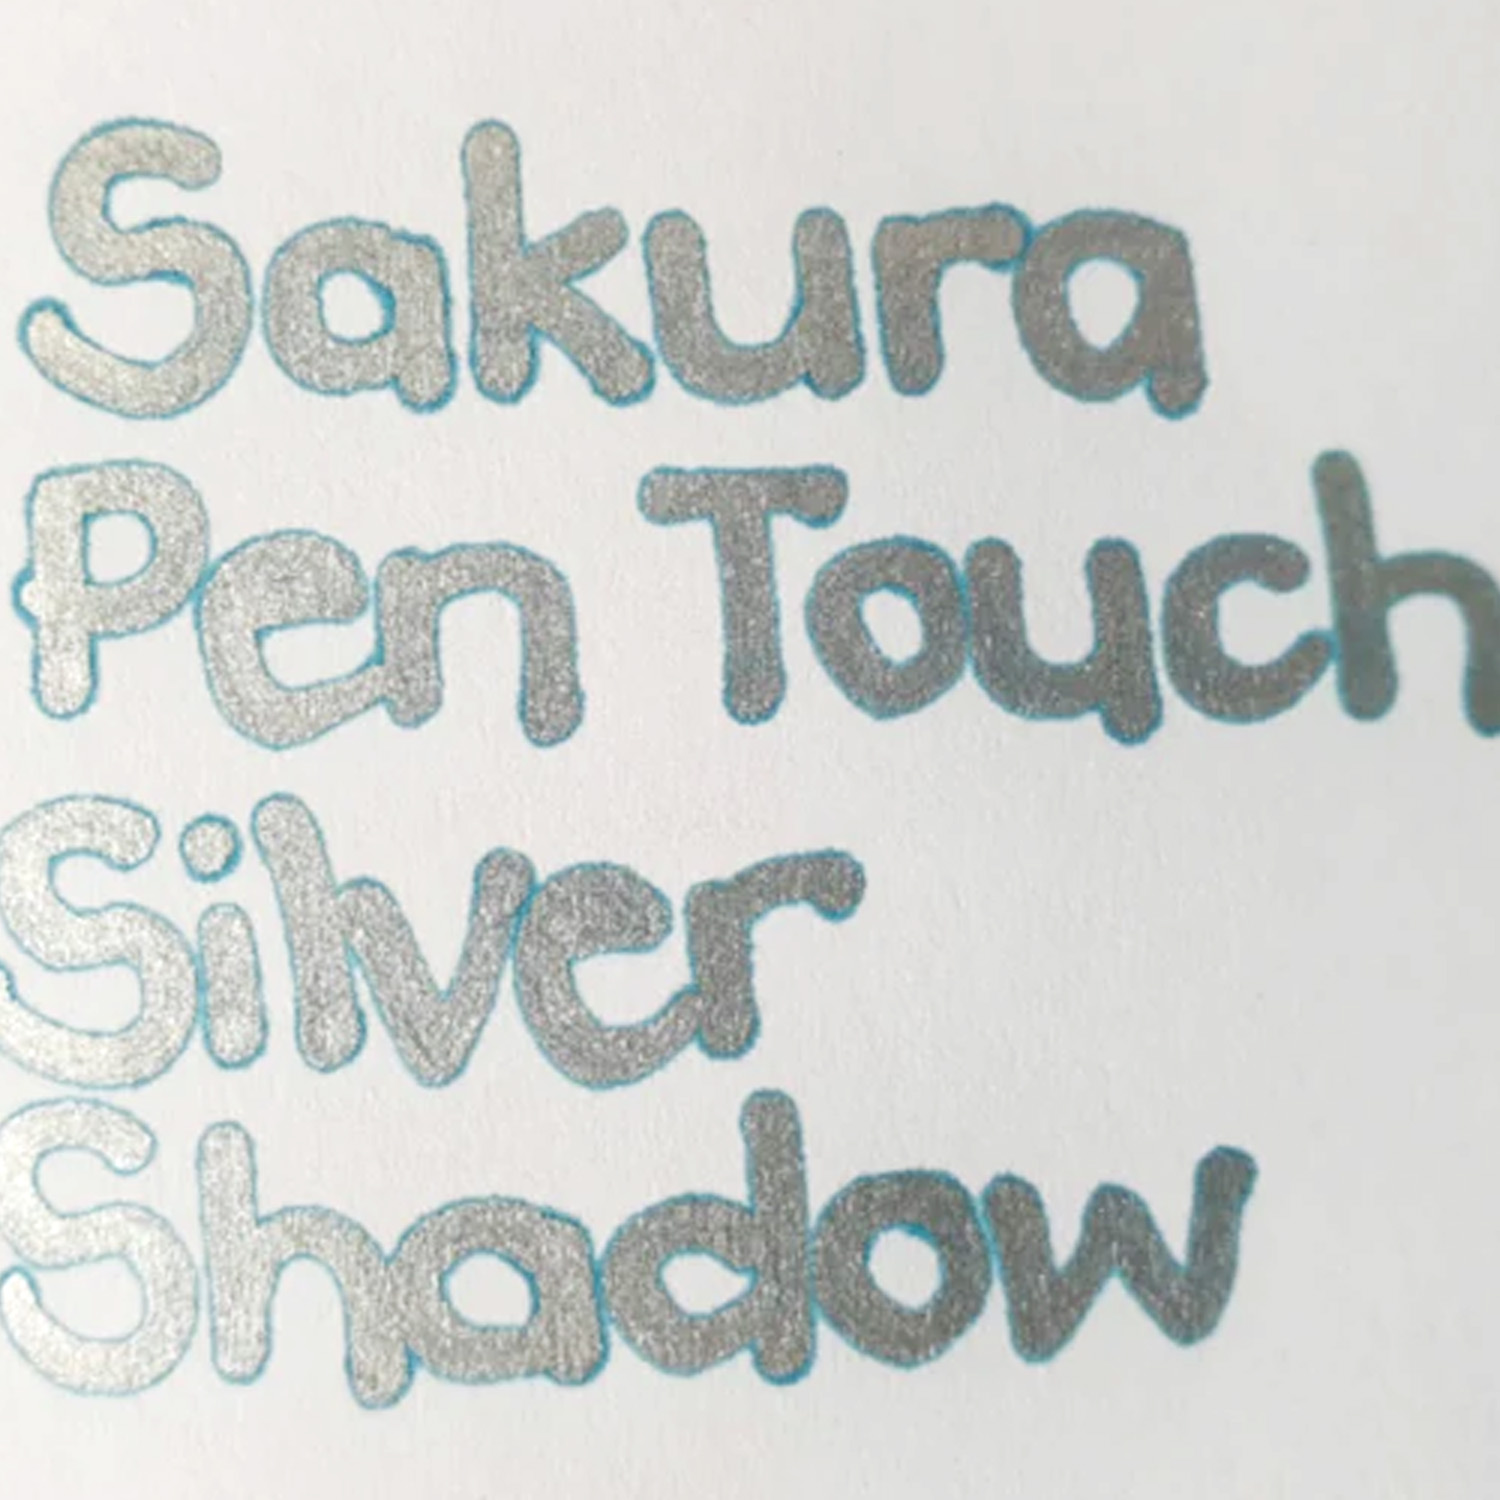 Sakura
Pen Touch
Silver
Shadow